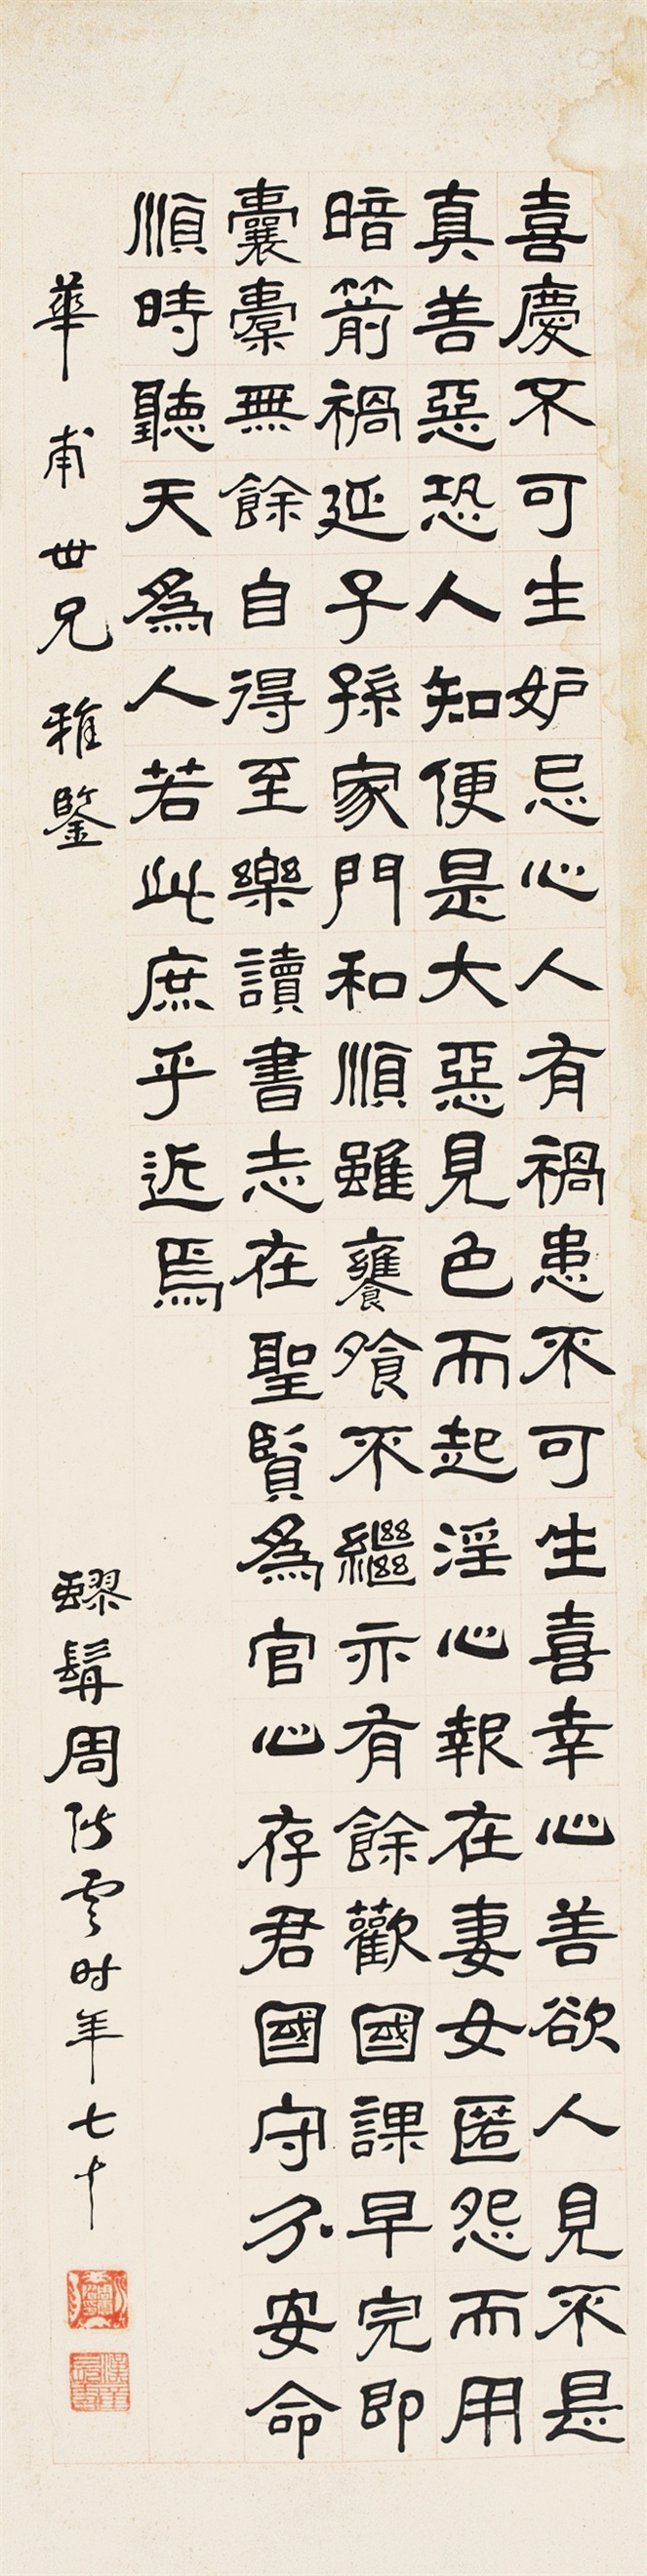 喜慶不可生妒忌心人有禍患不可生喜幸心善欲人見不是
真善惡恐人知便是大惡見色而起淫心報在妻女匿怨而用
暗箭禍延子孫家門和順雖饔飧不繼亦有餘歡國課早完即
囊橐無餘自得至樂讀書志在聖賢為官心存君國守分安命
順時聽天為人若此庶乎近焉
華甫世兄雅鑒
髯周 雲时年七十